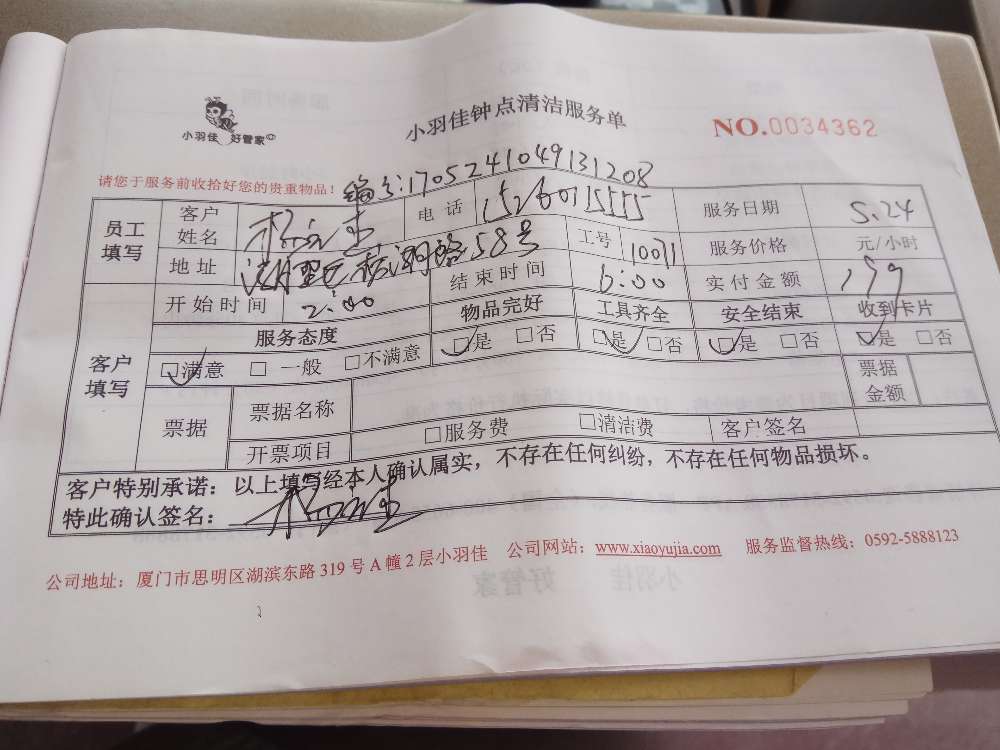 小羽佳 好管家
小羽佳钟点清洁服务单
NO.0034362
请您于服务前收拾好您的贵重物品!
编号:1705241049131208
员工填写 客户姓名 电话 服务日期 5.24
地址 湖里区 路58号 工号 10071 服务价格 元/小时
客户填写 开始时间 2:00 结束时间 6:00 实付金额 199
服务态度 物品完好 工具齐全 安全结束 收到卡片
□满意 □一般 □不满意 □是 □否 □是 □否 □是 □否 □是 □否
票据 票据名称 票据金额
开票项目 □服务费 □清洁费 客户签名
客户特别承诺:以上填写经本人确认属实,不存在任何纠纷,不存在任何物品损坏。
特此确认签名:
公司地址:厦门市思明区湖滨东路319号A幢2层小羽佳 公司网站:www.xiaoyujia.com 服务监督热线:0592-5888123